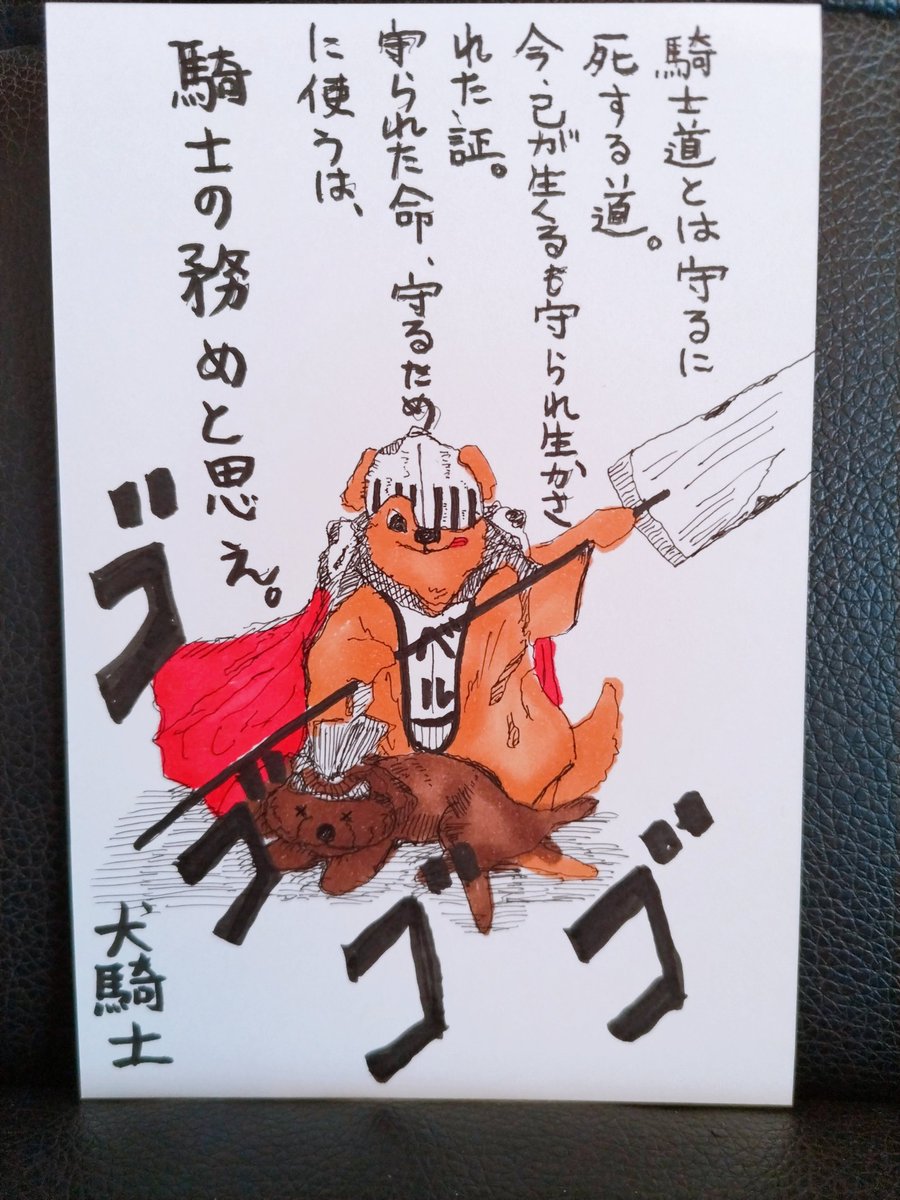 騎士道とは守るに
死する道。
今、己が生くるも守られ生かさ
れた証。
守られた命、守るため
に使うは、
騎士の務めと思え。
ベル
ゴゴゴゴ
犬騎士